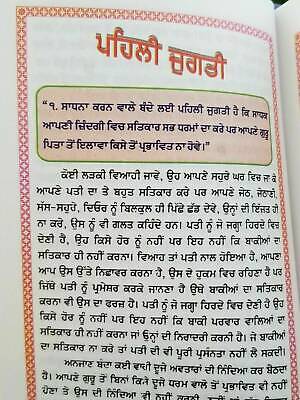 ਪਹਿਲੀ ਜੁਗਤੀ
“੧. ਸਾਧਨਾ ਕਰਨ ਵਾਲੇ ਬੰਦੇ ਲਈ ਪਹਿਲੀ ਜੁਗਤੀ ਹੈ ਕਿ ਸਾਧਕ
ਆਪਣੀ ਜ਼ਿੰਦਗੀ ਵਿਚ ਸਤਿਕਾਰ ਸਭ ਧਰਮਾਂ ਦਾ ਕਰੇ ਪਰ ਆਪਣੇ ਗੁਰੂ
ਪਿਤਾ ਤੋਂ ਇਲਾਵਾ ਕਿਸੇ ਤੋਂ ਪ੍ਰਭਾਵਿਤ ਨਾ ਹੋਵੇ।”
ਕੋਈ ਲੜਕੀ ਵਿਆਹੀ ਜਾਵੇ, ਉਹ ਆਪਣੇ ਸਹੁਰੇ ਘਰ ਵਿਚ ਜਾ ਕੇ
ਆਪਣੇ ਪਤੀ ਦਾ ਤੇ ਬਹੁਤ ਸਤਿਕਾਰ ਕਰੇ ਪਰ ਆਪਣੇ ਜੇਠ, ਜੇਠਾਣੀ,
ਸੱਸ-ਸਹੁਰੇ, ਦਿਓਰ ਨੂੰ ਬਿਲਕੁਲ ਹੀ ਪਿੱਛੇ ਛੱਡ ਦੇਵੇ, ਉਨ੍ਹਾਂ ਦੀ ਇੱਜ਼ਤ ਹੀ
ਨਾ ਕਰੇ, ਉਸ ਨੂੰ ਵੀ ਗਲਤ ਕਹਿੰਦੇ ਹਨ। ਪਤੀ ਨੂੰ ਜੋ ਜਗ੍ਹਾ ਹਿਰਦੇ ਵਿਚ
ਦੇਣੀ ਹੈ, ਉਹ ਕਿਸੇ ਹੋਰ ਨੂੰ ਨਹੀਂ ਪਰ ਇਹ ਨਹੀਂ ਕਿ ਬਾਕੀਆਂ ਦਾ
ਸਤਿਕਾਰ ਹੀ ਨਹੀਂ ਕਰਨਾ। ਵਿਆਹ ਤਾਂ ਪਤੀ ਨਾਲ ਹੋਇਆ ਹੈ, ਆਪਣਾ
ਆਪ ਉਸ ਉੱਤੇ ਨਿਛਾਵਰ ਕਰਨਾ ਹੈ, ਉਸ ਦੇ ਹੁਕਮ ਵਿਚ ਰਹਿਣਾ ਹੈ ਪਰ
ਜਿੱਥੇ ਪਤੀ ਨੂੰ ਪ੍ਰਮੇਸ਼ਰ ਕਰਕੇ ਜਾਨਣਾ ਹੈ ਉੱਥੇ ਬਾਕੀਆਂ ਦਾ ਸਤਿਕਾਰ
ਕਰਨਾ ਵੀ ਉਸ ਦਾ ਫਰਜ਼ ਹੈ। ਪਤੀ ਨੂੰ ਜੋ ਜਗ੍ਹਾ ਹਿਰਦੇ ਵਿਚ ਦੇਣੀ ਹੈ ਉਹ
ਕਿਸੇ ਹੋਰ ਨੂੰ ਨਹੀਂ ਪਰ ਇਹ ਨਹੀਂ ਕਿ ਬਾਕੀ ਪਰਵਾਰ ਵਾਲਿਆਂ ਦਾ
ਸਤਿਕਾਰ ਹੀ ਨਹੀਂ ਕਰਨਾ ਜਾਂ ਉਨ੍ਹਾਂ ਦੀ ਨਿਰਾਦਰੀ ਕਰਨੀ ਹੈ। ਜੇ ਬਾਕੀਆਂ
ਦਾ ਸਤਿਕਾਰ ਨਾ ਕਰੇ ਤਾਂ ਪਤੀ ਦੀ ਵੀ ਪੂਰੀ ਪ੍ਰਸੰਨਤਾ ਨਹੀਂ ਲੈ ਸਕਦੀ।
ਅਨਜਾਣ ਬੰਦਾ ਕਈ ਵਾਰੀ ਦੂਜੇ ਅਵਤਾਰਾਂ ਦੀ ਨਿੰਦਿਆ ਕਰ ਬੈਠਦਾ
ਹੈ। ਆਪਣੇ ਗੁਰੂ ਤੋਂ ਬਿਨਾਂ ਕਿਸੇ ਦੂਜੇ ਧਰਮ ਵਾਲੇ ਤੋਂ ਪ੍ਰਭਾਵਿਤ ਵੀ ਨਹੀਂ